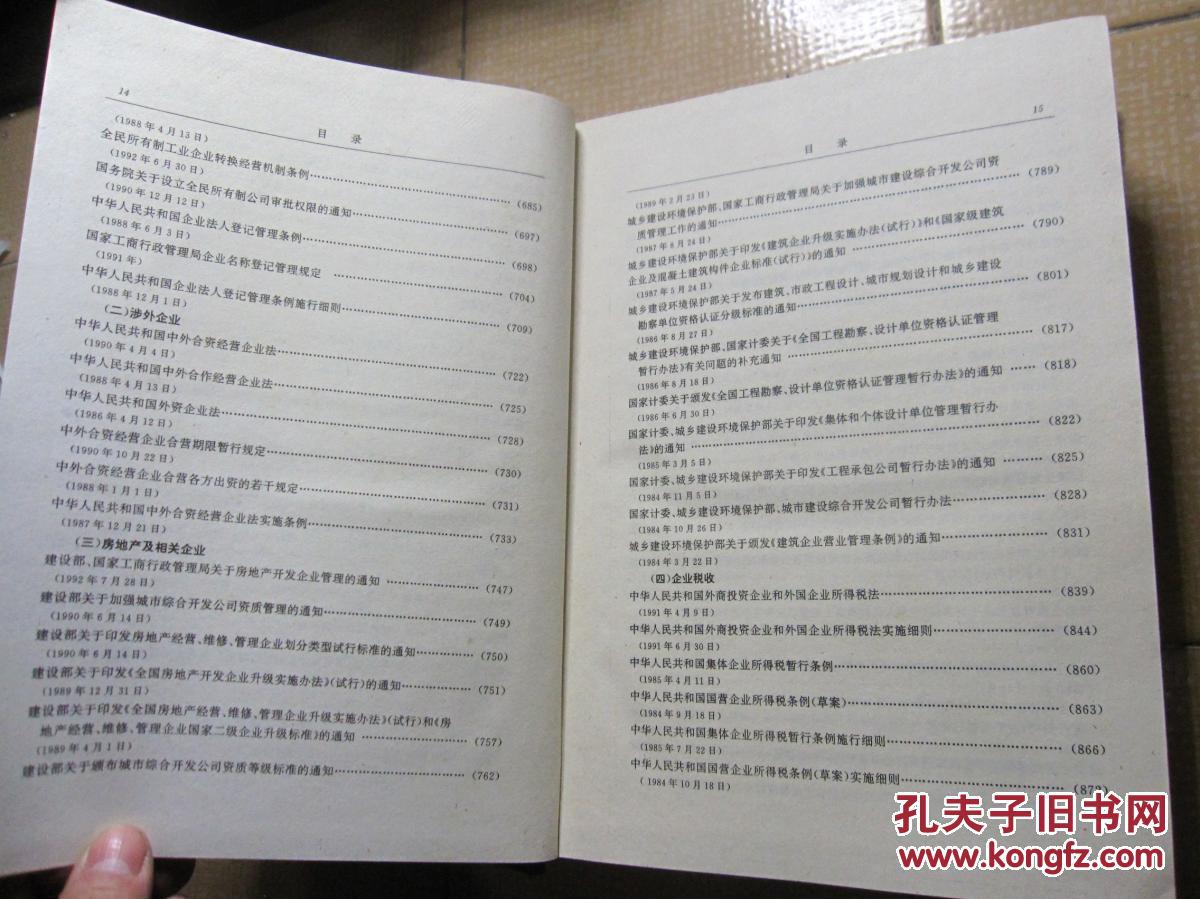 14
目　录
(1988年4月13日)
全民所有制工业企业转换经营机制条例……………………(685)
(1992年6月30日)
国务院关于设立全民所有制公司审批权限的通知……………………(697)
(1990年12月12日)
中华人民共和国企业法人登记管理条例……………………(698)
(1988年6月3日)
国家工商行政管理局企业名称登记管理规定 ……………………(704)
(1991年)
中华人民共和国企业法人登记管理条例施行细则……………………(709)
(1988年12月1日)
(二)涉外企业
中华人民共和国中外合资经营企业法……………………(722)
(1990年4月4日)
中华人民共和国中外合作经营企业法……………………(725)
(1988年4月13日)
中华人民共和国外资企业法……………………(728)
(1986年4月12日)
中外合资经营企业合营期限暂行规定……………………(730)
(1990年10月22日)
中外合资经营企业合营各方出资的若干规定……………………(731)
(1988年1月1日)
中华人民共和国中外合资经营企业法实施条例……………………(733)
(1987年12月21日)
(三)房地产及相关企业
建设部、国家工商行政管理局关于房地产开发企业管理的通知 ……………(747)
(1992年7月28日)
建设部关于加强城市综合开发公司资质管理的通知……………………(749)
(1990年6月14日)
建设部关于印发房地产经营、维修、管理企业划分类型试行标准的通知…………(750)
(1990年6月14日)
建设部关于印发《全国房地产开发企业升级实施办法》(试行)的通知…………(751)
(1989年12月31日)
建设部关于印发《全国房地产经营、维修、管理企业升级实施办法》(试行)和《房
地产经营、维修、管理企业国家二级企业升级标准》的通知 ……………(757)
(1989年4月1日)
建设部关于颁布城市综合开发公司资质等级标准的通知……………………(762)
15
目　录
(1989年2月23日)
城乡建设环境保护部、国家工商行政管理局关于加强城市建设综合开发公司资
质管理工作的通知……………………(789)
(1987年8月24日)
城乡建设环境保护部关于印发《建筑企业升级实施办法(试行)》和《国家级建筑
企业及混凝土建筑构件企业标准(试行)》的通知……………………(790)
(1987年5月24日)
城乡建设环境保护部关于发布建筑、市政工程设计、城市规划设计和城乡建设
勘察单位资格认证分级标准的通知……………………(801)
(1986年8月27日)
城乡建设环境保护部、国家计委关于《全国工程勘察、设计单位资格认证管理
暂行办法》有关问题的补充通知……………………(817)
(1986年8月18日)
国家计委关于颁发《全国工程勘察、设计单位资格认证管理暂行办法》的通知 ……(818)
(1986年6月30日)
国家计委、城乡建设环境保护部关于印发《集体和个体设计单位管理暂行办
法》的通知……………………(822)
(1985年3月5日)
国家计委、城乡建设环境保护部关于印发《工程承包公司暂行办法》的通知 ………(825)
(1984年11月5日)
国家计委、城乡建设环境保护部、城市建设综合开发公司暂行办法……………(828)
(1984年10月26日)
城乡建设环境保护部关于颁发《建筑企业营业管理条例》的通知……………(831)
(1984年3月22日)
(四)企业税收
中华人民共和国外商投资企业和外国企业所得税法……………………(839)
(1991年4月9日)
中华人民共和国外商投资企业和外国企业所得税法实施细则……………………(844)
(1991年6月30日)
中华人民共和国集体企业所得税暂行条例……………………(860)
(1985年4月11日)
中华人民共和国国营企业所得税条例(草案)……………………(863)
(1984年9月18日)
中华人民共和国集体企业所得税暂行条例施行细则……………………(866)
(1985年7月22日)
中华人民共和国国营企业所得税条例(草案)实施细则……………………(873)
(1984年10月18日)
孔夫子旧书网
www.kongfz.com